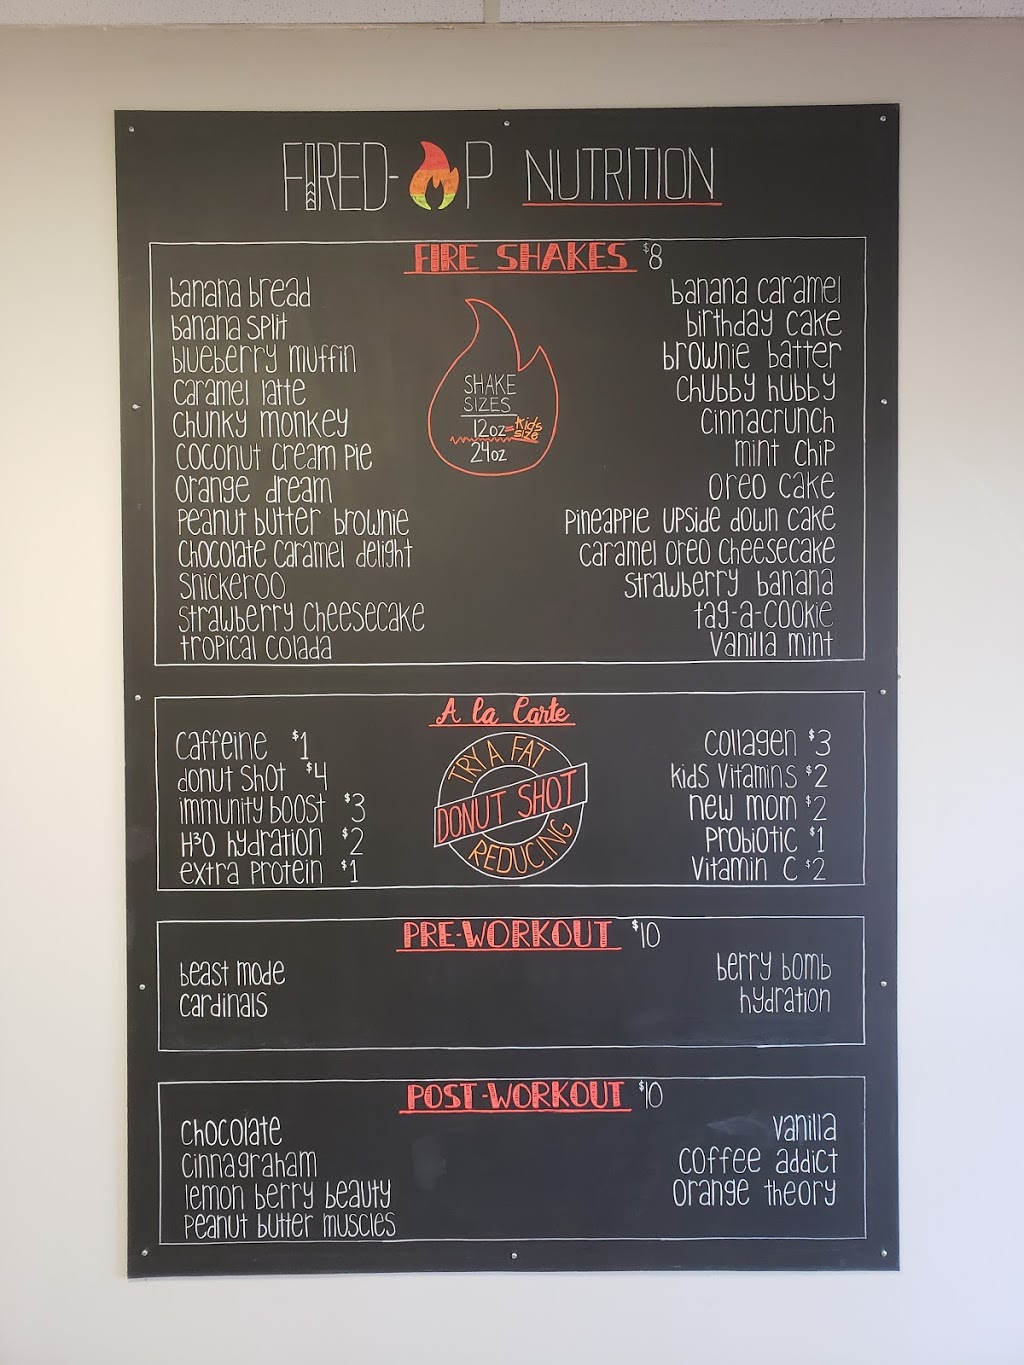 FIRED-UP NUTRITION
FIRE SHAKES $8
banana bread
banana split
blueberry muffin
caramel latte
chunky monkey
coconut cream pie
orange dream
peanut butter brownie
chocolate caramel delight
snickeroo
strawberry cheesecake
tropical colada
SHAKE
SIZES
12oz = Kids size
24oz
banana caramel
birthday cake
brownie batter
chubby hubby
cinnacrunch
mint chip
oreo cake
pineapple upside down cake
caramel oreo cheesecake
strawberry banana
tag-a-cookie
vanilla mint
A la Carte
caffeine $1
donut shot $4
immunity boost $3
H³O hydration $2
extra protein $1
TRY A FAT
DONUT SHOT
REDUCING
collagen $3
kids vitamins $2
new mom $2
probiotic $1
vitamin C $2
PRE-WORKOUT $10
beast mode
cardinals
berry bomb
hydration
POST-WORKOUT $10
chocolate
cinnagraham
lemon berry beauty
peanut butter muscles
vanilla
coffee addict
orange theory